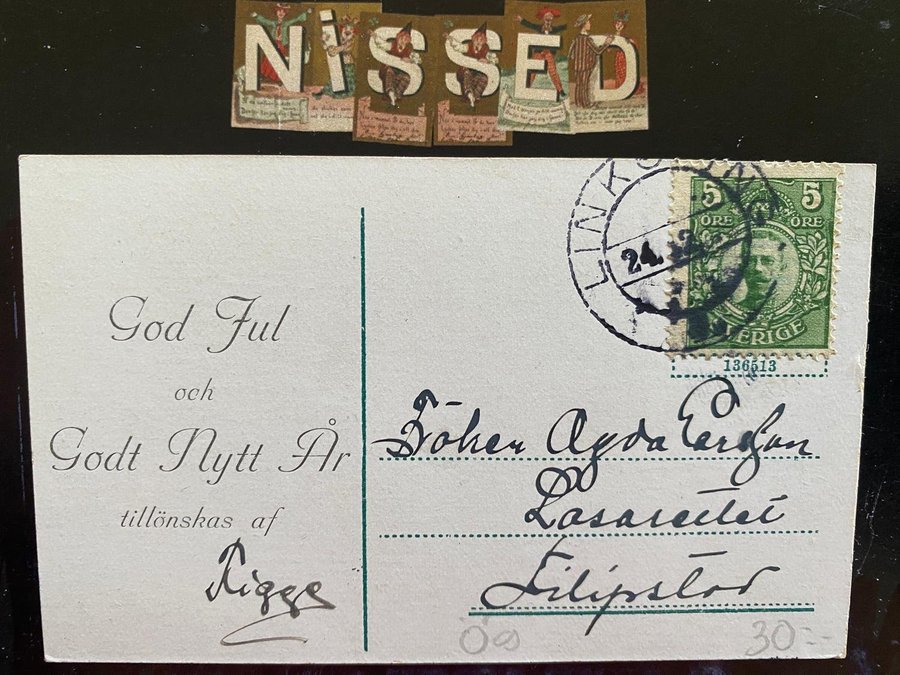 NiSSED
LINKÖPING
24.12
5 5
ÖRE ÖRE
SVERIGE
136513
God Jul
och
Godt Nytt År
tillönskas af
Sigge
Fröken Agda
Lasarettet
Filipstad
30:-